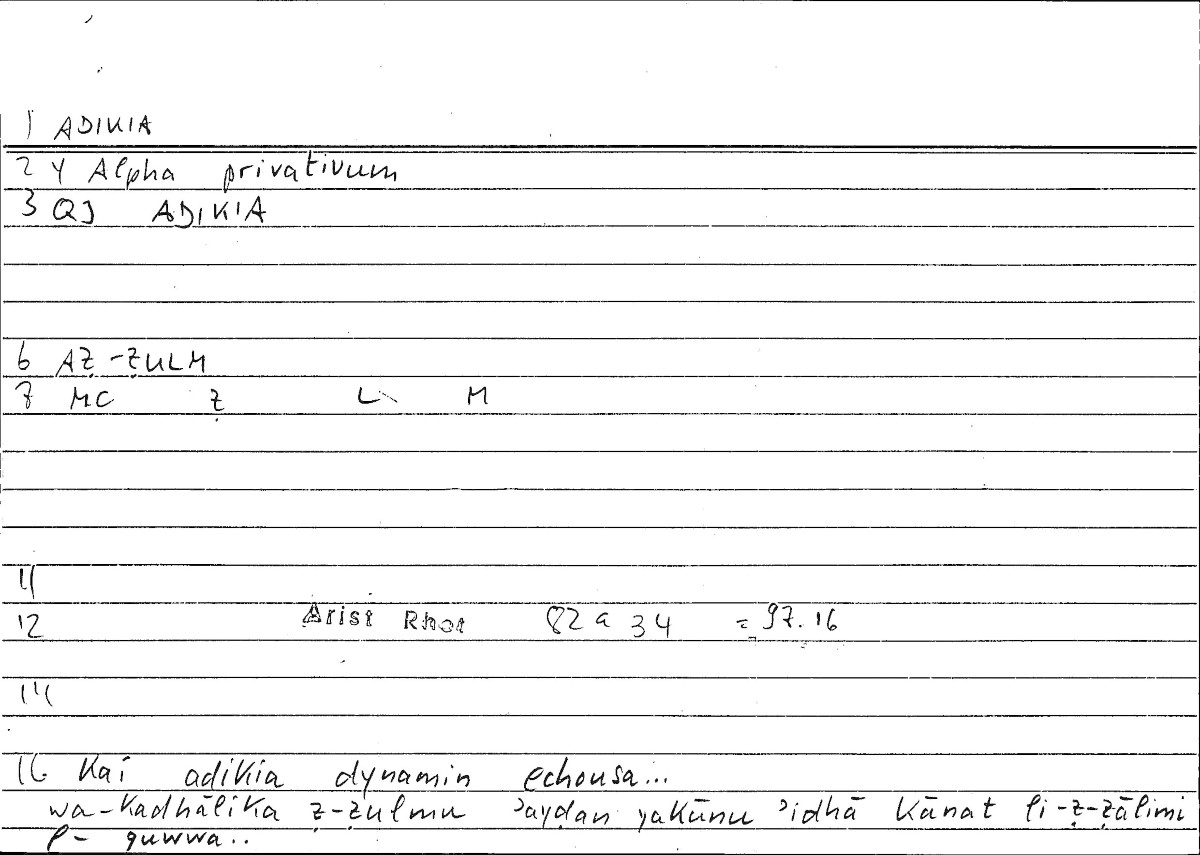 1 ADIKIA
2 Y Alpha privativum
3 QJ ADIKIA
6 AẒ-ẒULM
7 MC Ẓ L M
11
12 Arist Rhet 82 a 34 = 97.16
14
16 Kai adikia dynamin echousa...
wa-kadhālika ẓ-ẓulmu ʾayḍan yakūnu ʾidhā kānat li-ẓ-ẓālimi
l- quwwa..